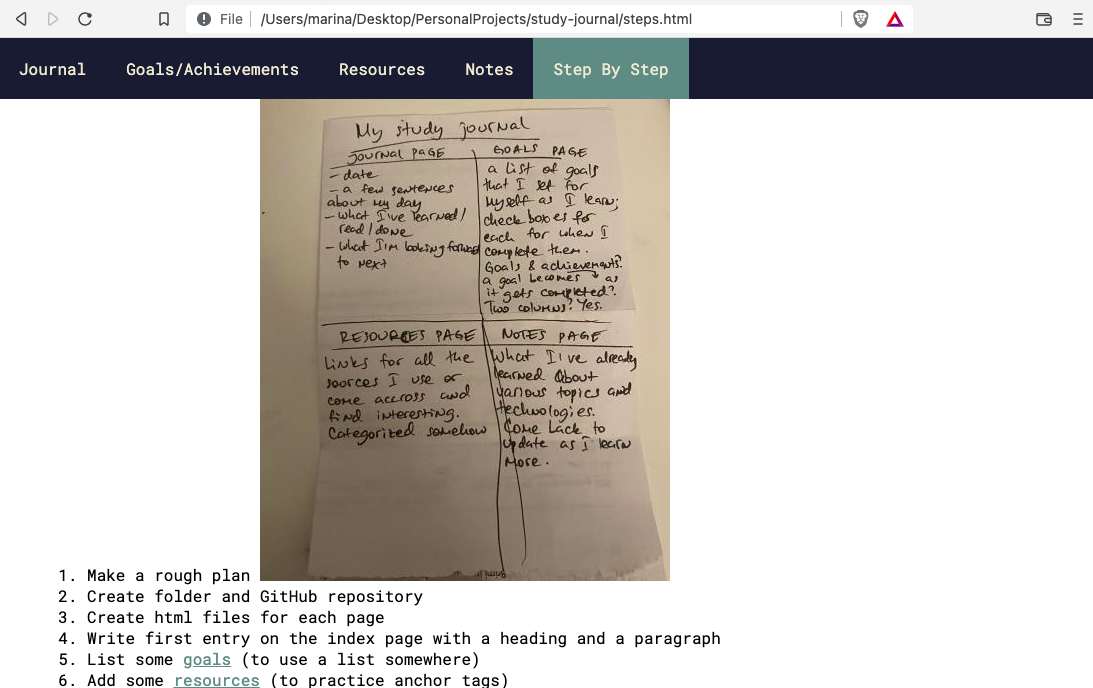 File /Users/marina/Desktop/PersonalProjects/study-journal/steps.html
Journal Goals/Achievements Resources Notes Step By Step
My study journal
JOURNAL PAGE
- date
- a few sentences
about my day
- what I've learned/
read/done
- what I'm looking forward
to next
GOALS PAGE
a list of goals
that I set for
myself as I learn;
check boxes for
each for when I
complete them.
Goals & achievements?
a goal becomes as
it gets completed?
Two columns? Yes.
RESOURCES PAGE
Links for all the
sources I use or
come accross and
find interesting.
Categorized somehow
NOTES PAGE
What I've already
learned about
various topics and
technologies.
Come back to
update as I learn
more.
1. Make a rough plan
2. Create folder and GitHub repository
3. Create html files for each page
4. Write first entry on the index page with a heading and a paragraph
5. List some goals (to use a list somewhere)
6. Add some resources (to practice anchor tags)